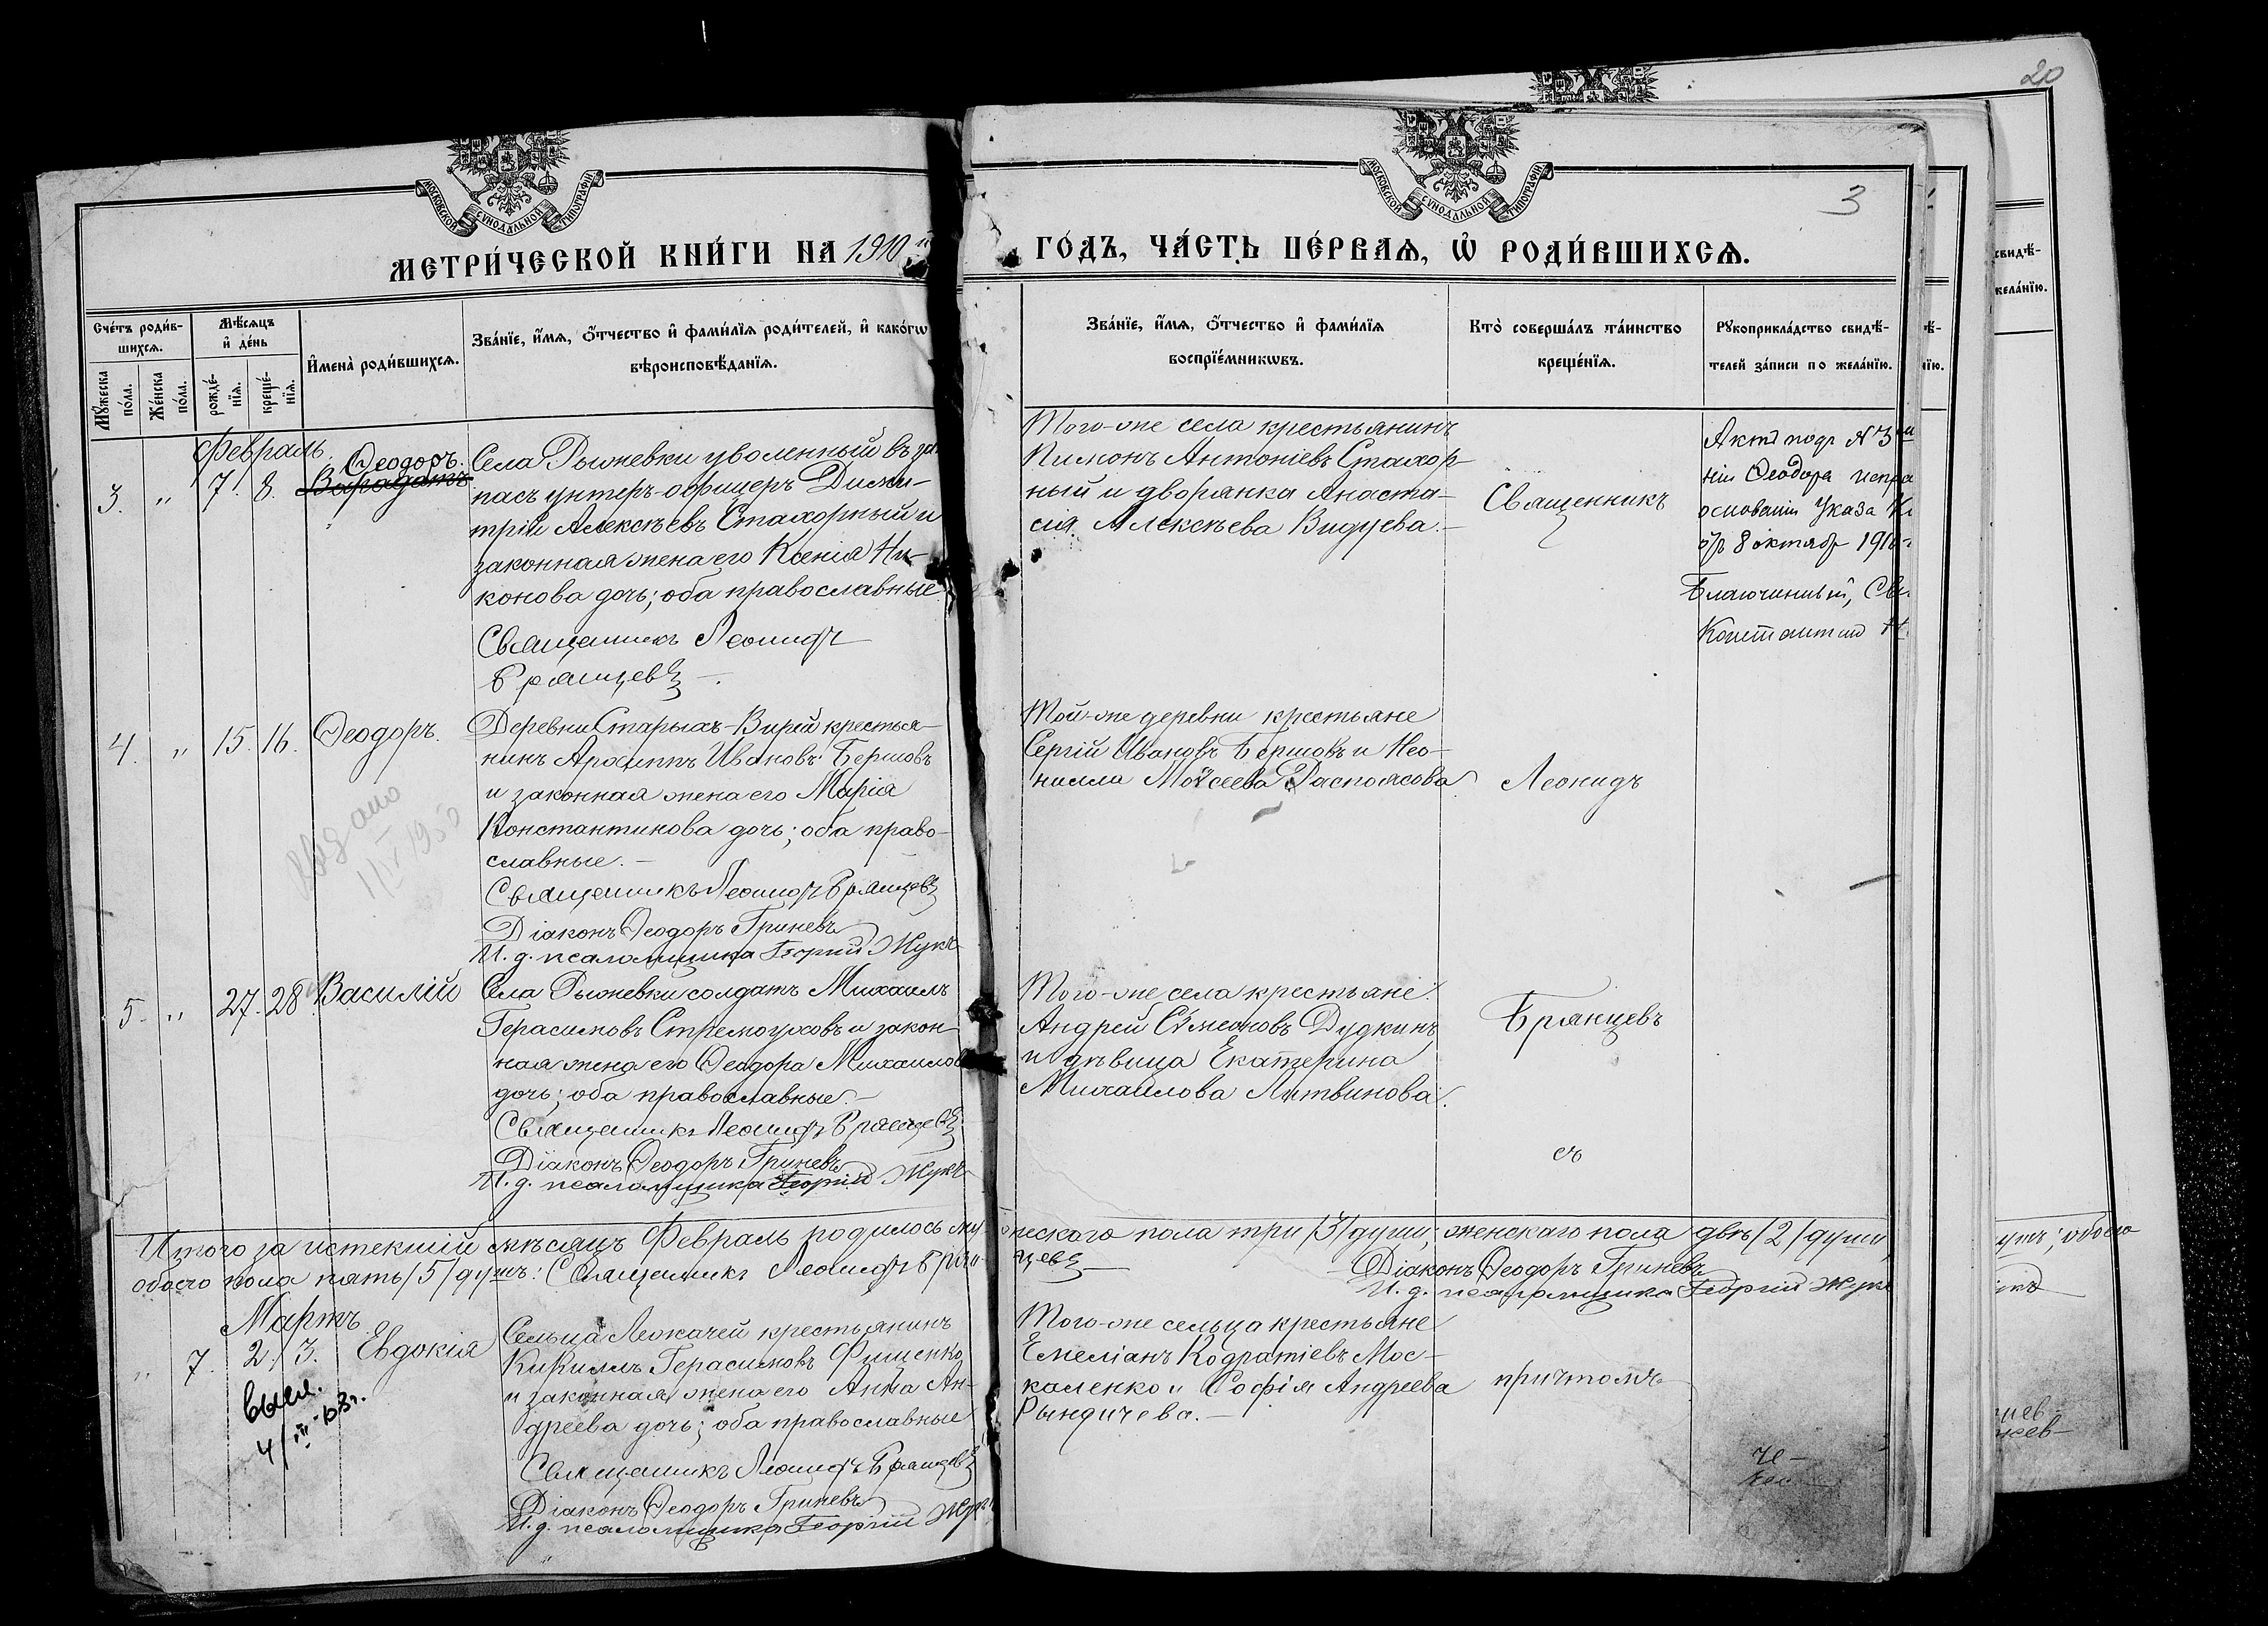 20
МОСКОВСКОЙ СѴНОДАЛЬНОЙ ТИПОГРАФІИ
МОСКОВСКОЙ СѴНОДАЛЬНОЙ ТИПОГРАФІИ
3
МЕТРИ́ЧЕСКОЙ КНИ́ГИ НА 1910 й
ГО́ДЪ, ЧА́СТЬ ПЕ́РВАѦ, Ѡ҆ РОДИ́ВШИХСѦ.
Сче́тъ роди́в-
шихсѧ.
Мꙋ́жеска по́ла.
Же́нска по́ла.
Мѣ́сѧцъ
и҆ де́нь
рожде́-
нїѧ.
креще́-
нїѧ.
И҆мена̀ роди́вшихсѧ.
Зва́нїе, и҆́мѧ, ѻ҆́тчество и҆ фами́лїѧ роди́телей, и҆ како́гѡ
вѣроисповѣ́данїѧ.
Зва́нїе, и҆́мѧ, ѻ҆́тчество и҆ фами́лїѧ
воспрїе́мникѡвъ.
Кто̀ соверша́лъ та́инство
креще́нїѧ.
Рꙋкоприкла́дство свидѣ́-
телей за́писи по жела́нїю.
Февраль.
3. " 7. 8.
Ѳеодоръ.
Села Рыжевки уволенный въ за-
пасъ унтеръ-офицеръ Дими-
трій Алексѣевъ Стахорный и
законная жена его Ксенія Ни-
конова дочь; оба православные.
Священникъ Леонидъ
Брянцевъ
Того-же села крестьянинъ
Пимонъ Антоніевъ Стахор-
ный и дворянка Анаста-
сія Алексѣева Видуева.
Священникъ
Актъ подъ №3
ніи Ѳеодора испра
основаніи Указа
отъ 8 октябр 1910
Благочинный, Св
Константин
4. " 15. 16. Ѳеодоръ.
Деревни Старыхъ-Вирей крестья-
нинъ Ивановъ Бершовъ
и законная жена его Марія
Константинова дочь; оба право-
славные.
Священникъ Леонидъ Брянцевъ
Діаконъ Ѳеодоръ Гриневъ
И. д. псаломщика Георгій Жукъ
Той-же деревни крестьяне
Сергій Ивановъ Бершовъ и Нео-
нилла Моѵсеева Распоясова
Леонидъ
5. " 27. 28 Василій
Села Рыжевки солдатъ Михаилъ
Герасимовъ Стремоуховъ и закон-
ная жена его Ѳеодора Михаилова
дочь; оба православные.
Священникъ Леонидъ Брянцевъ
Діаконъ Ѳеодоръ Гриневъ
И. д. псаломщика Георгій Жукъ
Того-же села крестьяне:
Андрей Сѵмеоновъ Дудкинъ
и дѣвица Екатерина
Михаилова Литвинова.
Брянцевъ
съ
Итого за истекшій мѣсяцъ Февраль родилось мужеского пола три /3/ души; женскаго пола двѣ /2/ души,
обоего пола пять /5/ душъ: Священникъ Леонидъ Брянцевъ
Діаконъ Ѳеодоръ Гриневъ
И. д. псаломщика Георгій Жукъ
Мартъ
" 7. 2. 3. Евдокія
Сельца Лежачей крестьянинъ
Кириллъ Герасимовъ Фищенко
и законная жена его Анна Ан-
дреева дочь; оба православные
Священникъ Леонидъ Брянцевъ
Діаконъ Ѳеодоръ Гриневъ
И. д. псаломщика Георгій Жукъ
Того-же сельца крестьяне
Емеліанъ Кодратіевъ Мос-
каленко и Софія Андреева
Рындичева.
причтомъ